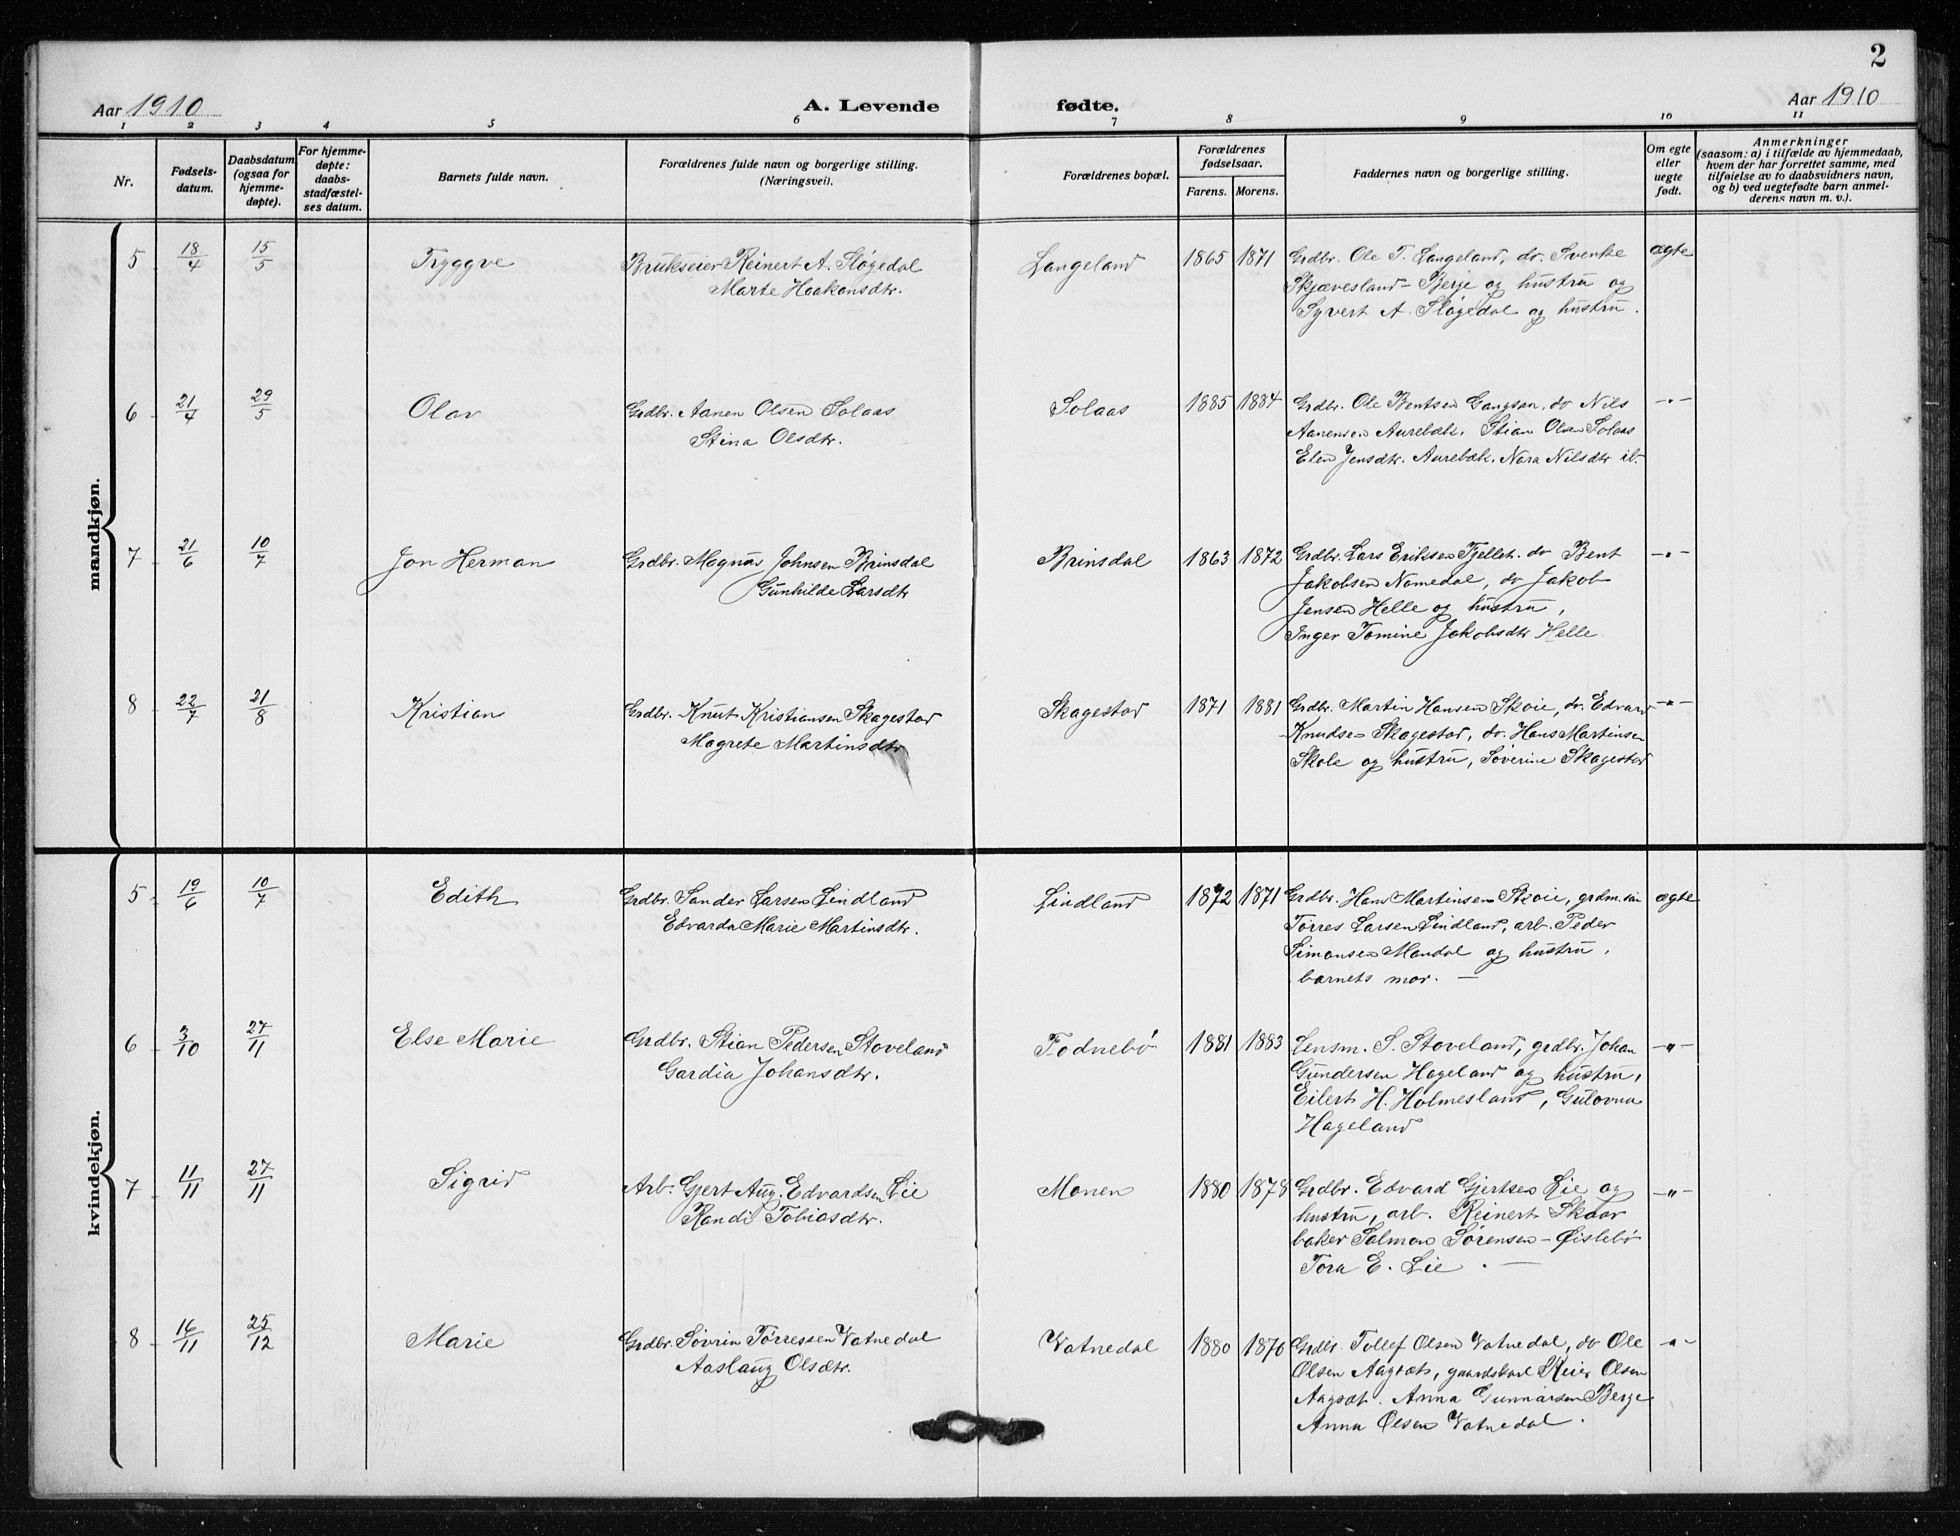 2
Aar 1910
A. Levende fødte.
Aar 1910
1 2 3 4 5 6 7 8 9 10 11
Nr.
Fødsels-
datum.
Daabsdatum
(ogsaa for
hjemme-
døpte).
For hjemme-
døpte:
daabs-
stadfæstel-
ses datum.
Barnets fulde navn.
Forældrenes fulde navn og borgerlige stilling.
(Næringsvei).
Forældrenes bopæl.
Forældrenes
fødselsaar.
Farens. Morens.
Faddernes navn og borgerlige stilling.
Om egte
eller
uegte
født.
Anmerkninger
(saasom: a) i tilfælde av hjemmedaab,
hvem der har forrettet samme, med
tilføielse av to daabsvidners navn,
og b) ved uegtefødte barn anmel-
derens navn m. v.).
mandkjøn.
5 18/4 15/5 Tryggve
Brukseier Reinert A. Sløgedal
Marte Haakonsdtr.
Langeland 1865 1871
Grdbr. Ole T. Langeland, do. Svenke
Skjævesland - Berge og hustru og
Syvert A. Sløgedal og hustru.
ægte
6 21/4 29/5 Olav
Grdbr. Aanen Olsen Solaas
Stina Olsdtr.
Solaas 1885 1884
Grdbr. Ole Bentsen do Nils
Aanensen Aurebæk. Stian Olsen Solaas
Elen Jensdtr. Aurebæk. Nora Nilsdtr ib.
-"-
7 21/6 10/7 Jon Herman
Grdbr. Magnus Johnsen Brinsdal
Gunhilde Larsdtr
Brinsdal 1863 1872
Grdbr. Lars Eriksen Fjellet. do Bent
Jakobsen Nomedal, do Jakob
Jensen Helle og hustru,
Inger Tomine Jakobsdtr Helle.
-"-
8 22/7 21/8 Kristian
Grdbr. Knut Kristiansen Skagestad
Magrete Martinsdtr
Skagestad 1871 1881
Grdbr. Martin Hansen Skoie, do. Edvard
Knudsen Skagestad, do. Hans Martinsen
Skoie og hustru, Søverine Skagestad
-"-
kvindekjøn.
5 19/6 10/7 Edith
Grdbr. Sander Larsen Lindland
Edvarda Marie Martinsdtr.
Lindland 1872 1871
Grdbr. Hans Martinsen Skoie, grdm.søn
Tørres Larsen Lindland, arb. Peder
Simonsen Mandal og hustru,
barnets mor. -
ægte
6 3/10 27/11 Else Marie
Grdbr. Stian Pedersen Stoveland
Gardia Johansdtr.
Fodnebø 1881 1883
Lensm. S. Stoveland, grdbr. Johan
Gundersen Hageland og hustru,
Eilert H. Holmesland, Gulovna
Hageland
-"-
7 11/11 27/11 Sigrid
Arb. Gjert Aug. Edvardsen Lie
Randi Tobiasdtr.
Monen 1880 1878
Grdbr. Edvard Gjertsen Lie og
hustru, arb. Reinert Skaar
baker Salmon Sørensen - Øislebø
Tora E. Lie. -
-"-
8 16/11 25/12 Marie
Grdbr Søvrin Tørressen Vatnedal
Aaslaug Olsdtr.
Vatnedal 1880 1876
Grdbr. Tollef Olsen Vatnedal, do Ole
Olsen Aagsæt, gaardskarl Reier Olsen
Aagsæt. Anna Gunnarsen Berge
Anna Olsen Vatnedal.
-"-